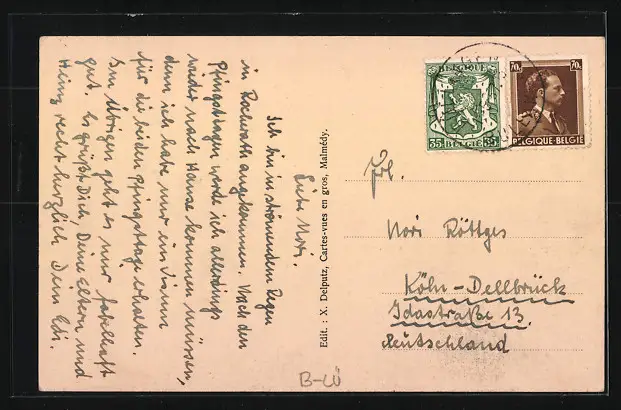 Liebe Nori.
Ich bin in strömendem Regen
in Rocherath angekommen. Nach den
Pfingsttagen werde ich allerdings
wieder nach Hause kommen müssen,
denn ich habe nur ein Visum
für die beiden Pfingsttage erhalten.
Im Übrigen geht es mir fabelhaft
gut. Es grüßt Dich, Deine Eltern und
Heinz recht herzlich Dein Edi.
Edit. : X. Delputz, Cartes-vues en gros, Malmédy.
BELGIQUE
35 BELGIE 35
70c 70c
BELGIQUE-BELGIE
Frl.
Nori Röttges
Köln-Dellbrück
Idastraße 13
Deutschland
B-LÜ